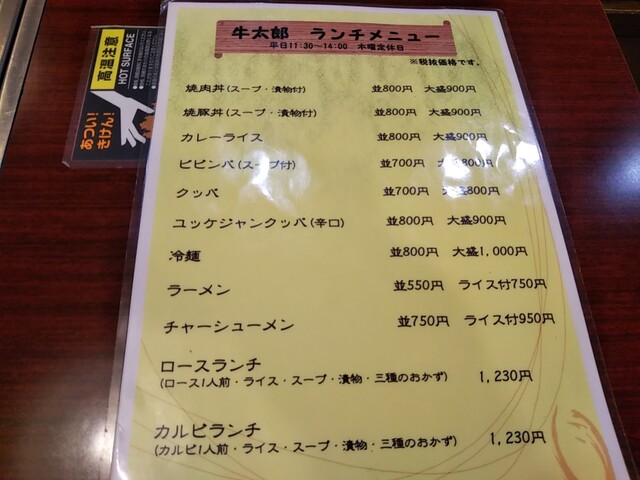 牛太郎　ランチメニュー
平日11:30～14:00　木曜定休日
※税抜価格です。
焼肉丼(スープ・漬物付)　並800円　大盛900円
焼豚丼(スープ・漬物付)　並800円　大盛900円
カレーライス　並800円　大盛900円
ビビンバ(スープ付)　並700円　大盛800円
クッパ　並700円　大盛800円
ユッケジャンクッパ(辛口)　並800円　大盛900円
冷麺　並800円　大盛1,000円
ラーメン　並550円　ライス付750円
チャーシューメン　並750円　ライス付950円
ロースランチ　1,230円
(ロース1人前・ライス・スープ・漬物・三種のおかず)
カルビランチ　1,230円
(カルビ1人前・ライス・スープ・漬物・三種のおかず)
高温注意
HOT SURFACE
あつい!
きけん!